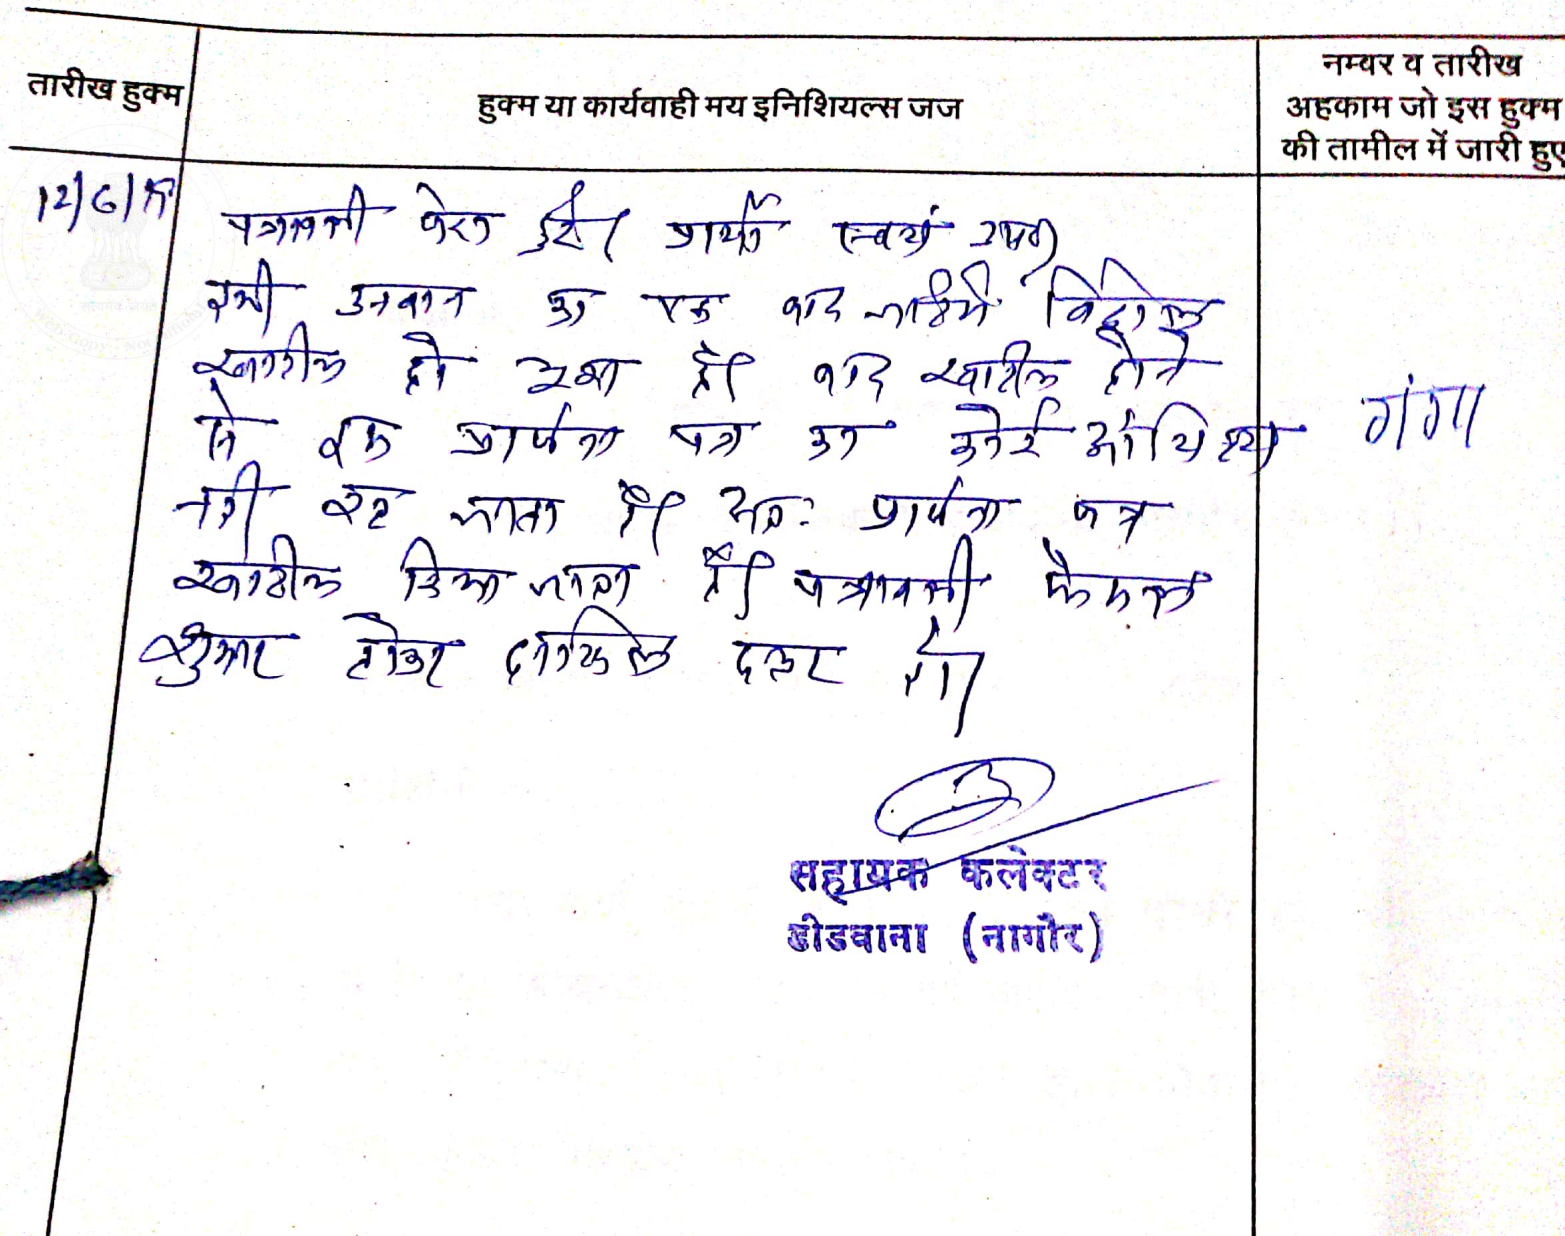 तारीख हुक्म
हुक्म या कार्यवाही मय इनिशियल्स जज
नम्बर व तारीख
अहकाम जो इस हुक्म
की तामील में जारी हुए
12/6/
पत्रावली पेश हुई। प्रार्थी स्वयं उप०
इसी उनवान का एक वाद
खारीज हो चुका है। वाद खारीज होने
से इस प्रार्थना पत्र का कोई औचित्य
नही रह जाता है। अतः प्रार्थना पत्र
खारीज किया जाता है। पत्रावली फैसल
शुमार होकर दाखिल दफ्तर हो।
गंगा
सहायक कलेक्टर
डीडवाना (नागौर)